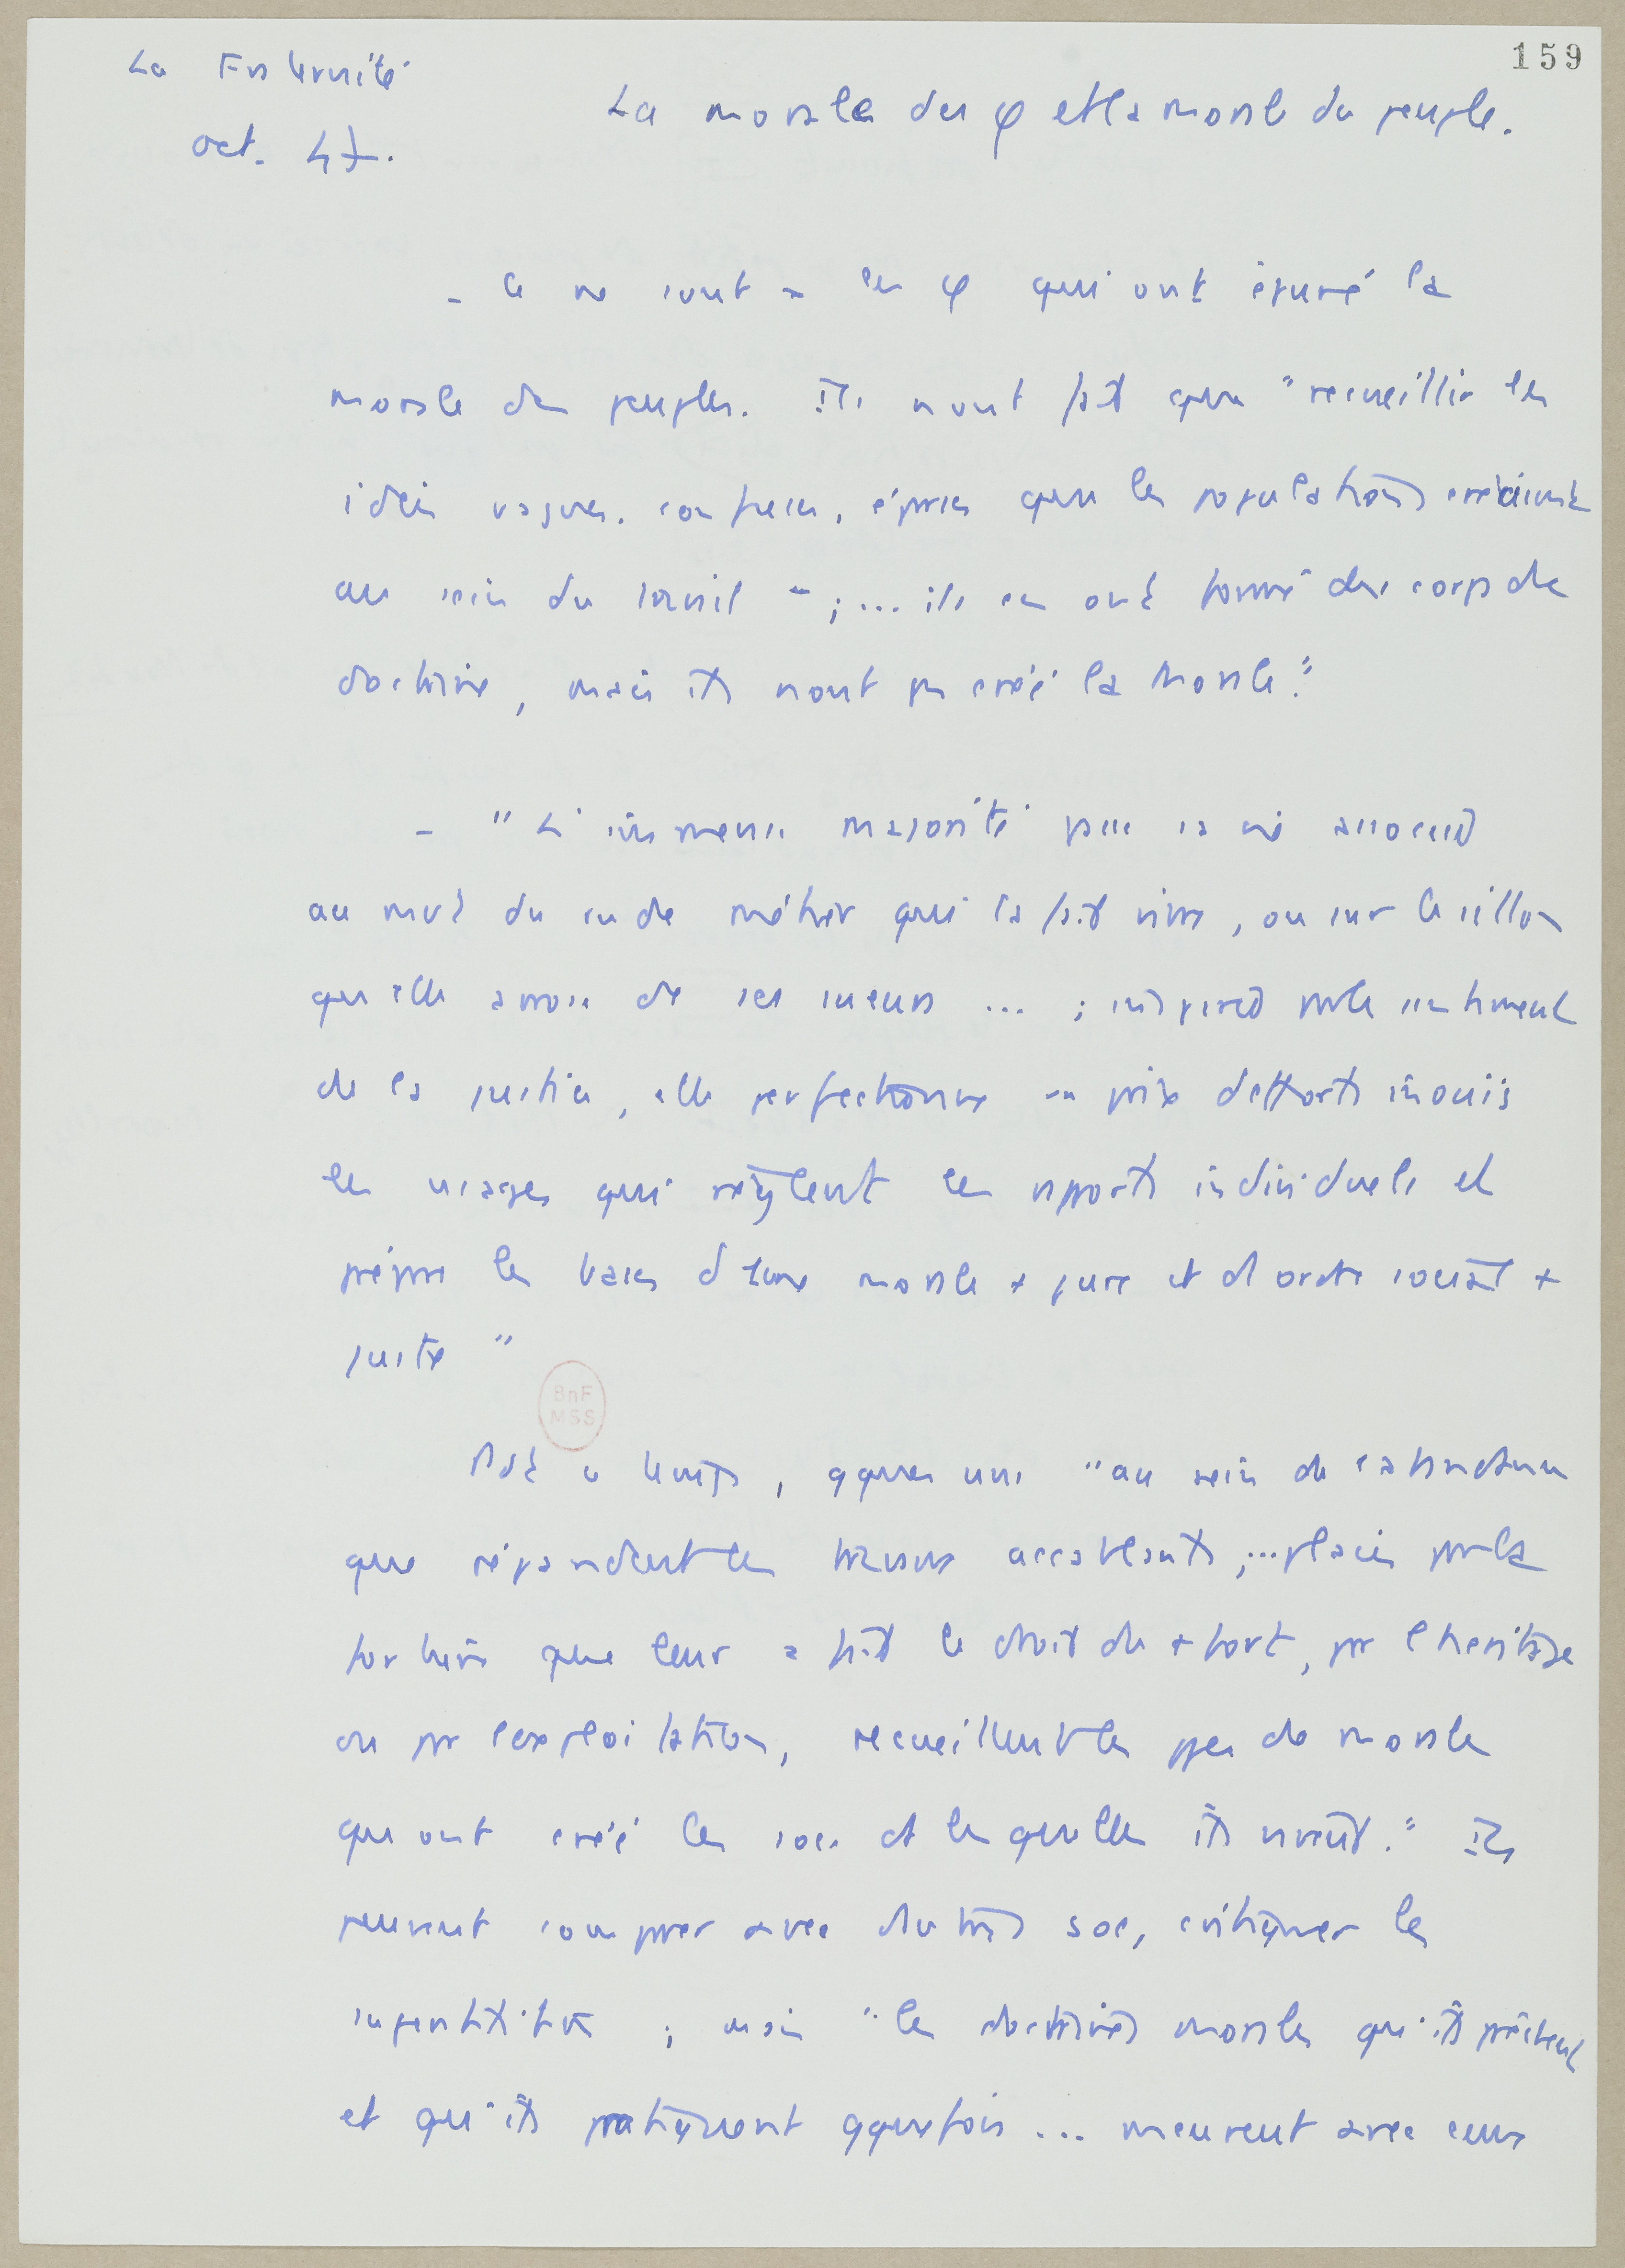 159
La Fraternité
oct. 47.
La morale des φ et la morale du peuple.
- Ce ne sont pas les φ qui ont épuré la
morale des peuples. Ils n'ont fait que "recueillir les
idées vagues, confuses, éparses que les populations créaient
au sein du travail" ;... ils en ont formé des corps de
doctrine, mais ils n'ont pas créé la morale."
- "L'immense majorité passe sa vie
au mur du rude métier qui la fait vivre, ou sur le sillon
qu'elle arrose de ses sueurs ... ; inspirée par le sentiment
de la justice, elle perfectionne au prix d'efforts inouïs
les usages qui règlent les rapports individuels et
prépare les bases d'une morale + pure et d'ordre social +
juste"
BnF
MSS
Pdt ce temps, qques uns "au sein de
que répandent les travaux accablants ;... placés par la
fortune que leur a fait le droit du + fort, par l'héritage
ou par l'exploitation, recueillent les ppes de morale
qu'ont créé les soc. ds lesquelles ils vivent." Ils
peuvent comparer avec d'autres soc, critiquer les
superstitions ; mais "les doctrines morales qu'ils prêchent
et qu'ils pratiquent qquefois ... meurent avec eux